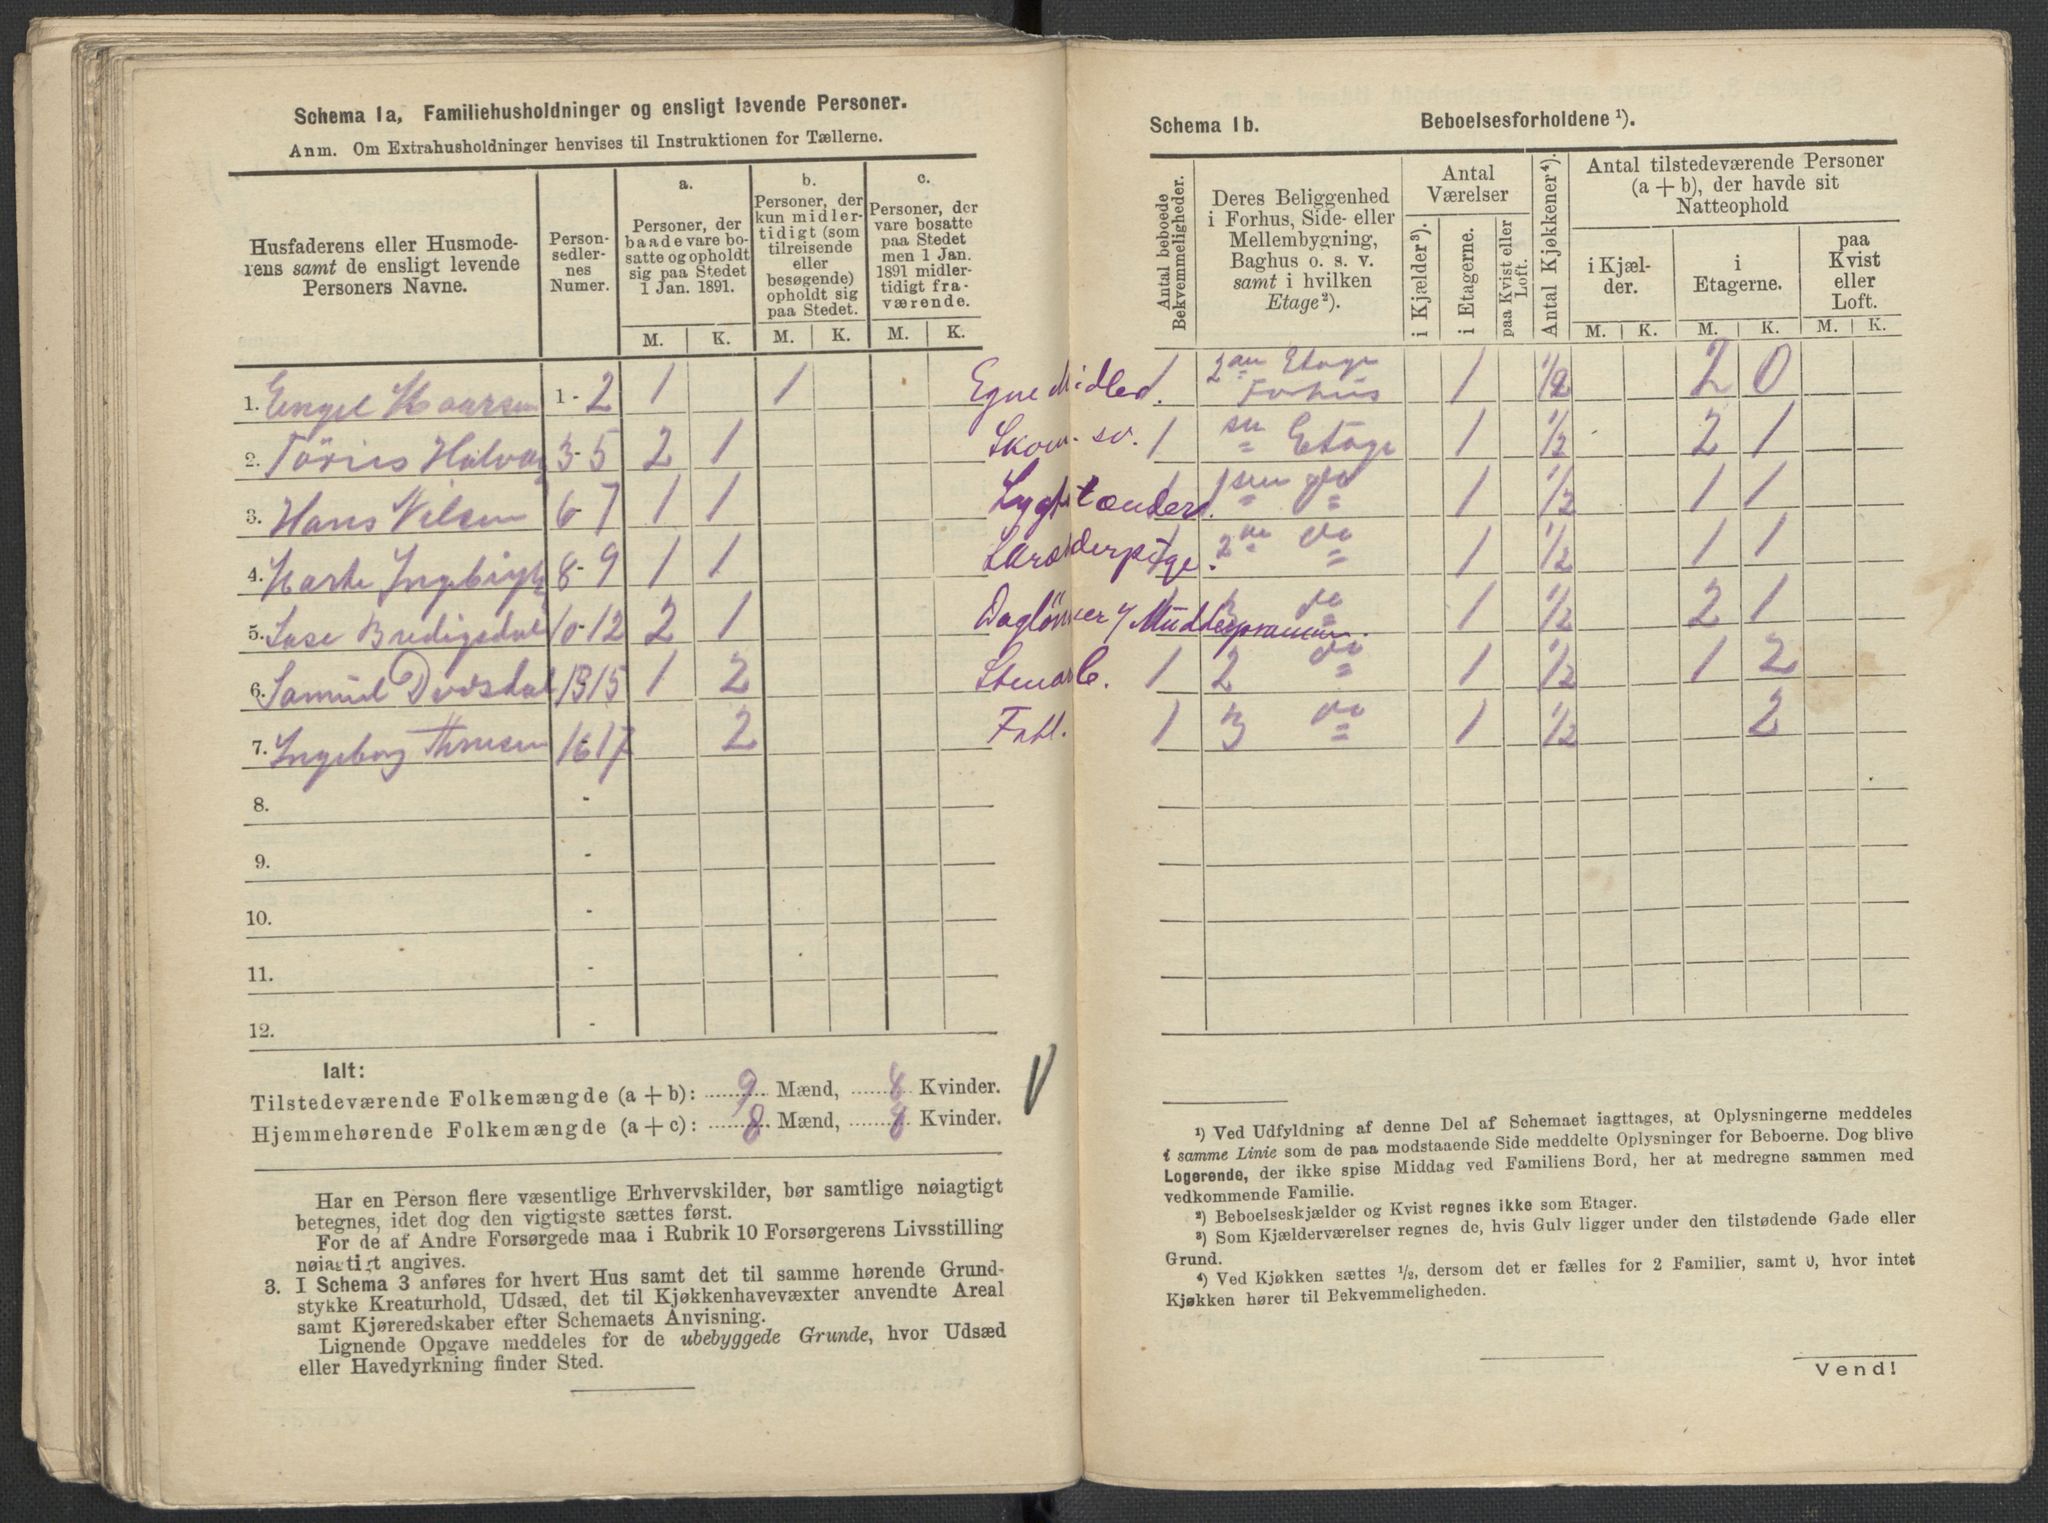 Schema 1a, Familiehusholdninger og ensligt levende Personer.
Anm. Om Extrahusholdninger henvises til Instruktionen for Tællerne.
Husfaderens eller Husmoderens samt de ensligt levende Personers Navne.
Personsedlernes Numer.
a. Personer, der baade vare bosatte og opholdt sig paa Stedet 1 Jan. 1891.
b. Personer, der kun midlertidigt (som tilreisende eller besøgende) opholdt sig paa Stedet.
c. Personer, der vare bosatte paa Stedet men 1 Jan. 1891 midlertidigt fraværende.
M. K. M. K. M. K.
1. Engel 1-2 1 1 Egne Midler.
2. Töries Halvor 3-5 2 1 Skom. sv.
3. Hans Nilsen 6-7 1 1 Lygtetænder.
4. Ingebrigt 8-9 1 1
5. Lase Bredigsdal 10-12 2 1 Daglönner v/ Mudderprammen.
6. Samuel Dversdal 13 15 1 2 Stenarb.
7. Ingeborg Thruesen 16 17 2 Fabl.
8. -
9. -
10. -
11. -
12. -
Ialt:
Tilstedeværende Folkemængde (a + b): 9 Mænd, 8 Kvinder.
Hjemmehørende Folkemængde (a + c): 8 Mænd, 8 Kvinder.
Har en Person flere væsentlige Erhvervskilder, bør samtlige nøiagtigt
betegnes, idet dog den vigtigste sættes først.
For de af Andre Forsørgede maa i Rubrik 10 Forsørgerens Livsstilling
nøiagtigt angives.
3. I Schema 3 anføres for hvert Hus samt det til samme hørende Grund-
stykke Kreaturhold, Udsæd, det til Kjøkkenhavevæxter anvendte Areal
samt Kjøreredskaber efter Schemaets Anvisning.
Lignende Opgave meddeles for de ubebyggede Grunde, hvor Udsæd
eller Havedyrkning finder Sted.
Schema 1b. Beboelsesforholdene ¹).
Antal beboede Bekvemmeligheder.
Deres Beliggenhed i Forhus, Side- eller Mellembygning, Baghus o. s. v. samt i hvilken Etage ²).
Antal Værelser
i Kjælder ³).
i Etagerne.
paa Kvist eller Loft.
Antal Kjøkkener ⁴).
Antal tilstedeværende Personer (a + b), der havde sit Natteophold
i Kjælder.
i Etagerne.
paa Kvist eller Loft.
M. K. M. K. M. K.
1 2den Etage Forhus 1 1/2 2 0
1 " Etage 1 1/2 2 1
1 1sten do " " 1 1/2 1 1
1 2 do " 1 1/2 1 1
1 3 do " 1 1/2 2 1
1 2 do " 1 1/2 1 2
1 3 do " 1 1/2 2
¹) Ved Udfyldning af denne Del af Schemaet iagttages, at Oplysningerne meddeles
i samme Linie som de paa modstaaende Side meddelte Oplysninger for Beboerne. Dog blive
Logerende, der ikke spise Middag ved Familiens Bord, her at medregne sammen med
vedkommende Familie.
²) Beboelseskjælder og Kvist regnes ikke som Etager.
³) Som Kjælderværelser regnes de, hvis Gulv ligger under den tilstødende Gade eller
Grund.
⁴) Ved Kjøkken sættes ½, dersom det er fælles for 2 Familier, samt 0, hvor intet
Kjøkken hører til Bekvemmeligheden.
Vend!